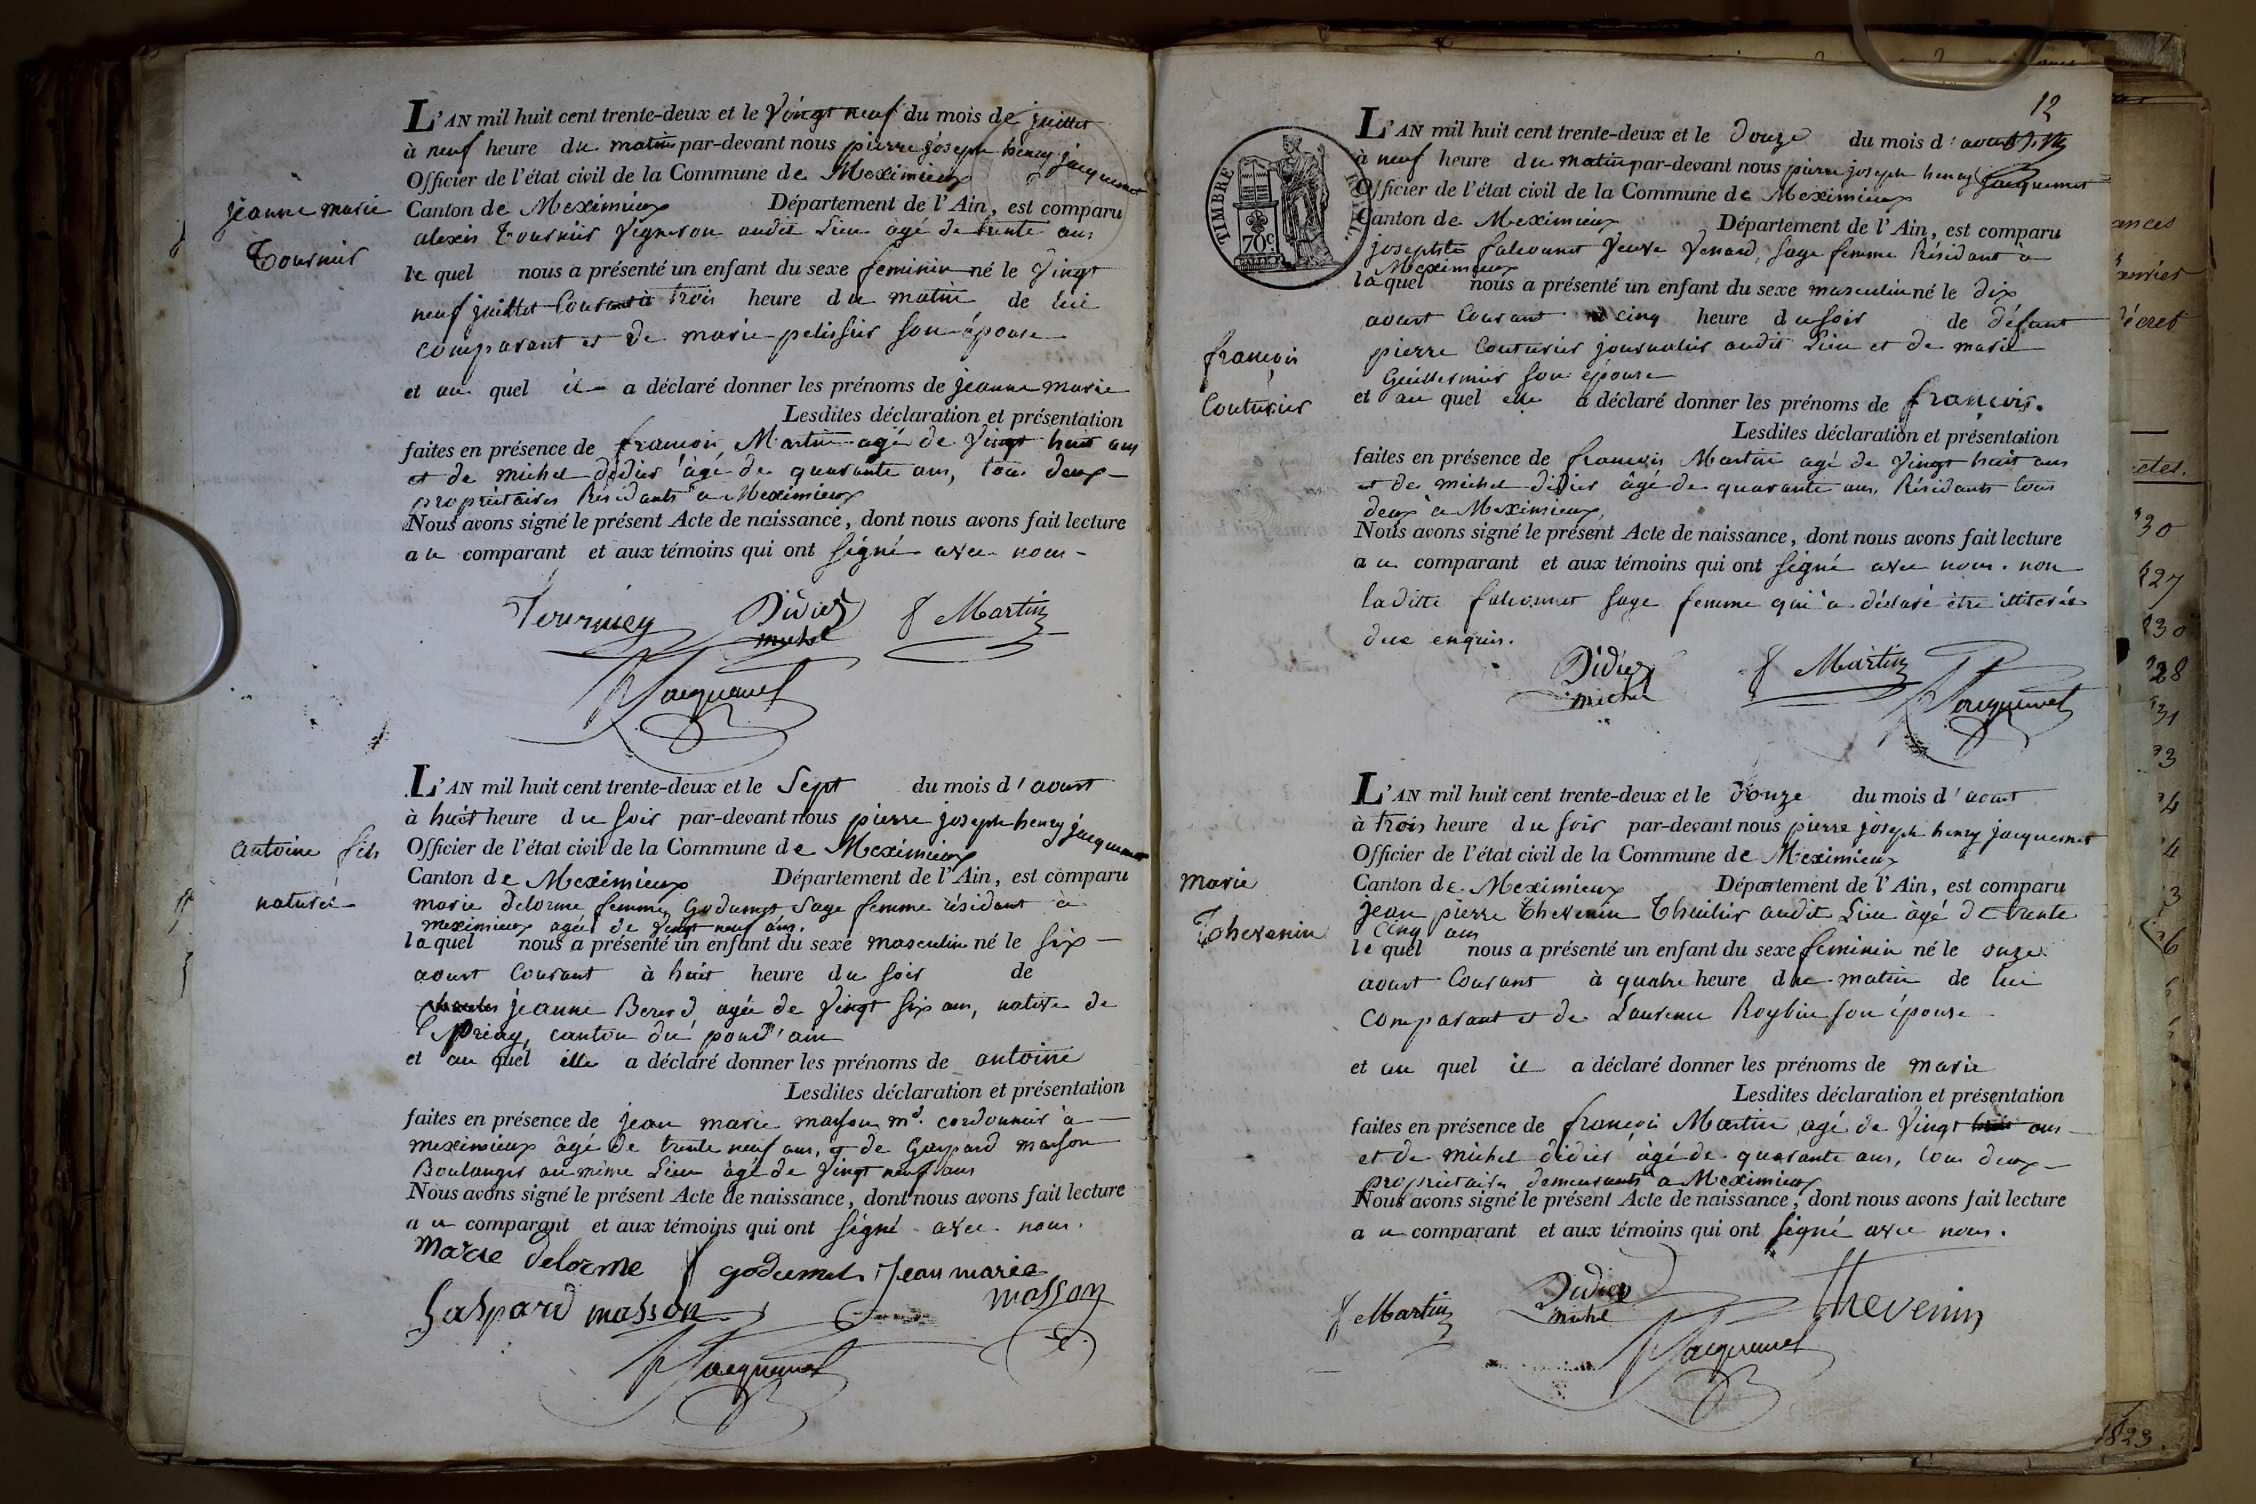 jeanne marie
Tournier
L'AN mil huit cent trente-deux et le Vingt neuf du mois de juillet
à neuf heure du matin par-devant nous pierre joseph henry jacquemet
Officier de l'état civil de la Commune de Meximieux
Canton de Meximieux Département de l'Ain, est comparu
alexis Tournier Vigneron audit Lieu âgé de trente ans
le quel nous a présenté un enfant du sexe feminin né le Vingt
neuf juillet Courant à trois heure du matin de lui
comparant et de marie pelissier son épouse
et au quel il a déclaré donner les prénoms de jeanne marie
Lesdites déclaration et présentation
faites en présence de françois Martin agé de Vingt huit ans
et de michel didier âgé de quarante ans, tous deux
propriétaires Résidants à Meximieux
Nous avons signé le présent Acte de naissance, dont nous avons fait lecture
au comparant et aux témoins qui ont signé avec nous
Tournier Didier michel f Martin
Jacquemet
antoine fils
naturel
L'AN mil huit cent trente-deux et le Sept du mois d'aoust
à huit heure du soir par-devant nous pierre joseph henry jacquemet
Officier de l'état civil de la Commune de Meximieux
Canton de Meximieux Département de l'Ain, est comparu
marie delorme femme Godemet Sage femme résidant à
meximieux agée de vingt neuf ans.
laquel nous a présenté un enfant du sexe masculin né le six
aoust Courant à huit heure du soir de
jeanne Bererd agée de Vingt six ans, native de
Priay, canton du pond'ain
et au quel elle a déclaré donner les prénoms de antoine
Lesdites déclaration et présentation
faites en présence de jean marie masson md. cordonnier à
meximieux âgé de trente neuf ans, et de Gaspard masson
Boulanger au même Lieu âgé de Vingt neuf ans
Nous avons signé le présent Acte de naissance, dont nous avons fait lecture
au comparant et aux témoins qui ont signé avec nous.
marie delorme f godemet jean marie
Gaspard masson masson
Jacquemet
12
TIMBRE ROYAL.
70c
L'AN mil huit cent trente-deux et le douze du mois d'aoust
à neuf heure du matin par-devant nous pierre joseph henry Jacquemet
Officier de l'état civil de la Commune de Meximieux
Canton de Meximieux Département de l'Ain, est comparu
josephte falconnet Veuve Venard, sage femme Résidant à
Meximieux
laquel nous a présenté un enfant du sexe masculin né le dix
aoust Courant à cinq heure du soir de défunt
pierre Couturier journalier audit Lieu et de marie
Guillermier son épouse
françois
Couturier
et au quel elle a déclaré donner les prénoms de françois.
Lesdites déclaration et présentation
faites en présence de françois Martin agé de Vingt huit ans
et de michel didier âgé de quarante ans, Résidants tous
deux à Meximieux,
Nous avons signé le présent Acte de naissance, dont nous avons fait lecture
au comparant et aux témoins qui ont signé avec nous. non
laditte falconnet sage femme qui a déclaré être illiterée
due enquis.
Didier michel f Martin
Jacquemet
marie
Thevenin
L'AN mil huit cent trente-deux et le douze du mois d'aoust
à trois heure du soir par-devant nous pierre joseph henry jacquemet
Officier de l'état civil de la Commune de Meximieux
Canton de Meximieux Département de l'Ain, est comparu
jean pierre Thevenin Thuilier audit Lieu âgé de trente
cinq ans
le quel nous a présenté un enfant du sexe feminin né le onze
aoust Courant à quatre heure du matin de lui
comparant et de Laurence Roybin son épouse
et au quel il a déclaré donner les prénoms de marie
Lesdites déclaration et présentation
faites en présence de françois Martin agé de Vingt huit ans
et de michel didier âgé de quarante ans, tous deux
propriétaires demeurants à Meximieux
Nous avons signé le présent Acte de naissance, dont nous avons fait lecture
au comparant et aux témoins qui ont signé avec nous.
f Martin Didier michel Thevenin
Jacquemet
30
27
30
28
31
1823